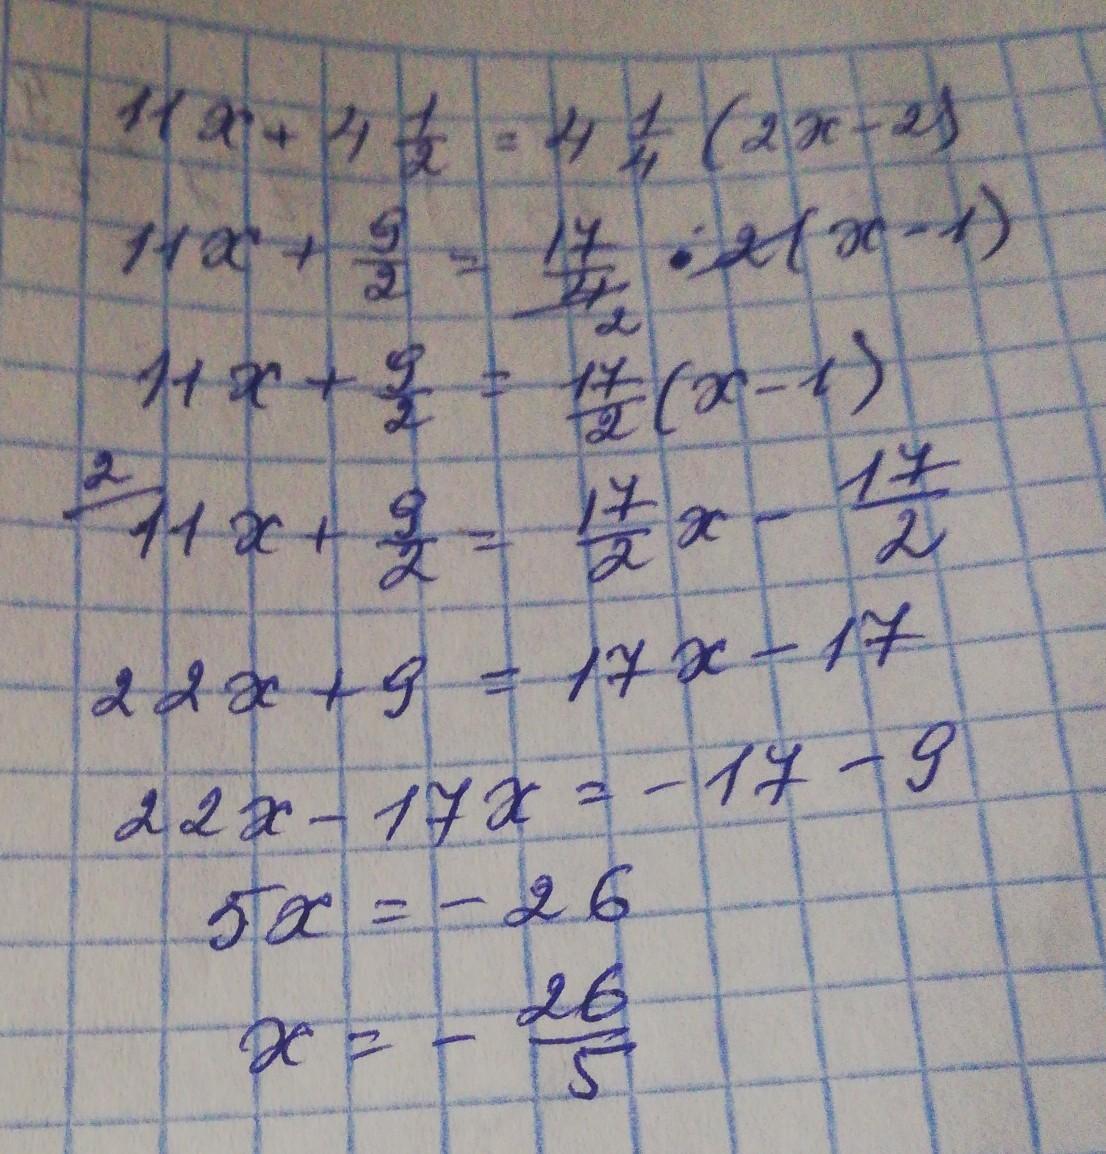 11x + 4 1/2 = 4 1/4 (2x - 2)
11x + 9/2 = 17/4 2 · 2(x - 1)
11x + 9/2 = 17/2 (x - 1)
2/ 11x + 9/2 = 17/2 x - 17/2
22x + 9 = 17x - 17
22x - 17x = -17 - 9
5x = -26
x = - 26/5